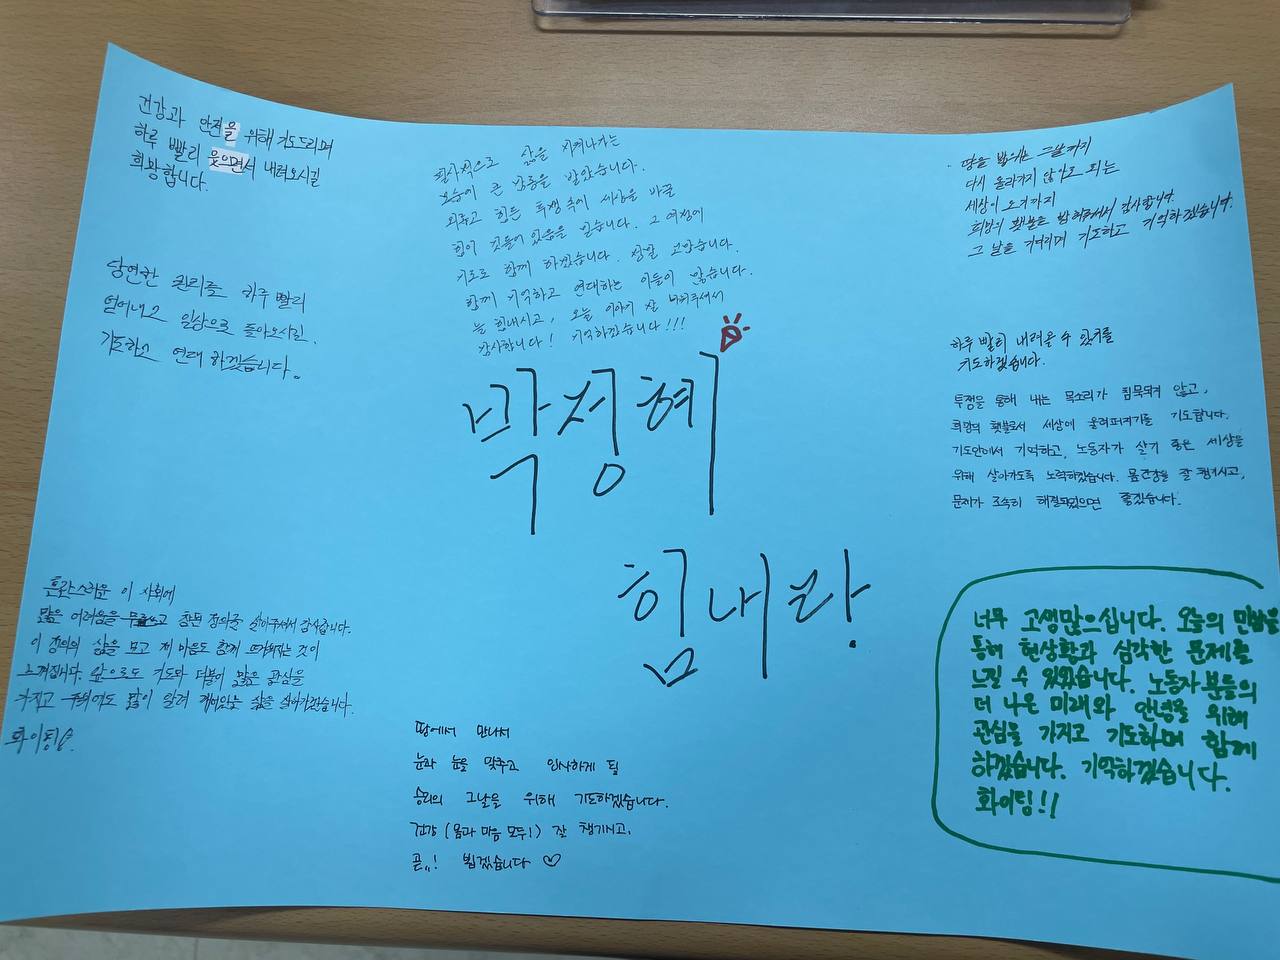 건강과 안전을 위해 기도드리며
하루 빨리 웃으면서 내려오시길
희망합니다.
당연한 권리를 하루 빨리
얻어내고 일상으로 돌아오시길.
기도하고 연대 하겠습니다.
필사적으로 삶을 지켜나가는
모습에 큰 감동을 받았습니다.
외롭고 힘든 투쟁 속에 세상을 바꿀
힘이 깃들어 있음을 믿습니다. 그 여정에
기도로 함께 하겠습니다. 정말 고맙습니다.
함께 기억하고 연대하는 이들이 많습니다.
늘 힘내시고, 오늘 이야기 잘 나눠주셔서
감사합니다! 기억하겠습니다!!!
땅을 밟으는 그날까지
다시 올라가지 않아도 되는
세상이 오기까지
희망의 횃불을 밝혀주셔서 감사합니다.
그 날을 기다리며 기도하고 기억하겠습니다.
하루 빨리 내려올 수 있기를
기도하겠습니다.
투쟁을 통해 내는 목소리가 침묵되지 않고,
희망의 횃불로서 세상에 울려퍼지기를 기도합니다.
기도안에서 기억하고, 노동자가 살기 좋은 세상을
위해 살아가도록 노력하겠습니다. 몸건강을 잘 챙기시고,
문제가 조속히 해결되었으면 좋겠습니다.
박정혜
힘내라.
혼란스러운 이 사회에
많은 어려움을 무릅쓰고 참된 정의를 살아주셔서 감사합니다.
이 정의의 삶을 보고 제 마음도 함께 뜨거워지는 것이
느껴집니다. 앞으로도 기도와 더불어 많은 관심을
가지고 주위에도 많이 알려 깨어있는 삶을 살아가겠습니다.
화이팅!
땅에서 만나서
눈과 눈을 맞추고 인사하게 될
승리의 그날을 위해 기도하겠습니다.
건강 (몸과 마음 모두!) 잘 챙기시고,
곧,,! 뵙겠습니다 ♡
너무 고생많으십니다. 오늘의 만남을
통해 현상황과 심각한 문제를
느낄 수 있었습니다. 노동자분들의
더 나은 미래와 안녕을 위해
관심을 가지고 기도하며 함께
하겠습니다. 기억하겠습니다.
화이팅!!